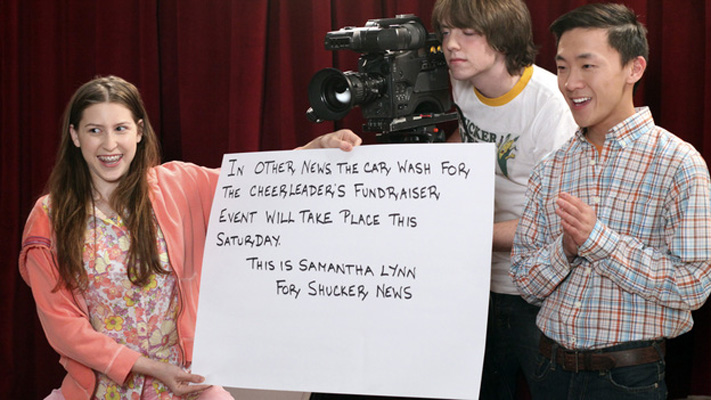 In Other News, The Car Wash For
The Cheerleader's Fundraiser
Event Will Take Place This
Saturday.
This is Samantha Lynn
For Shucker News